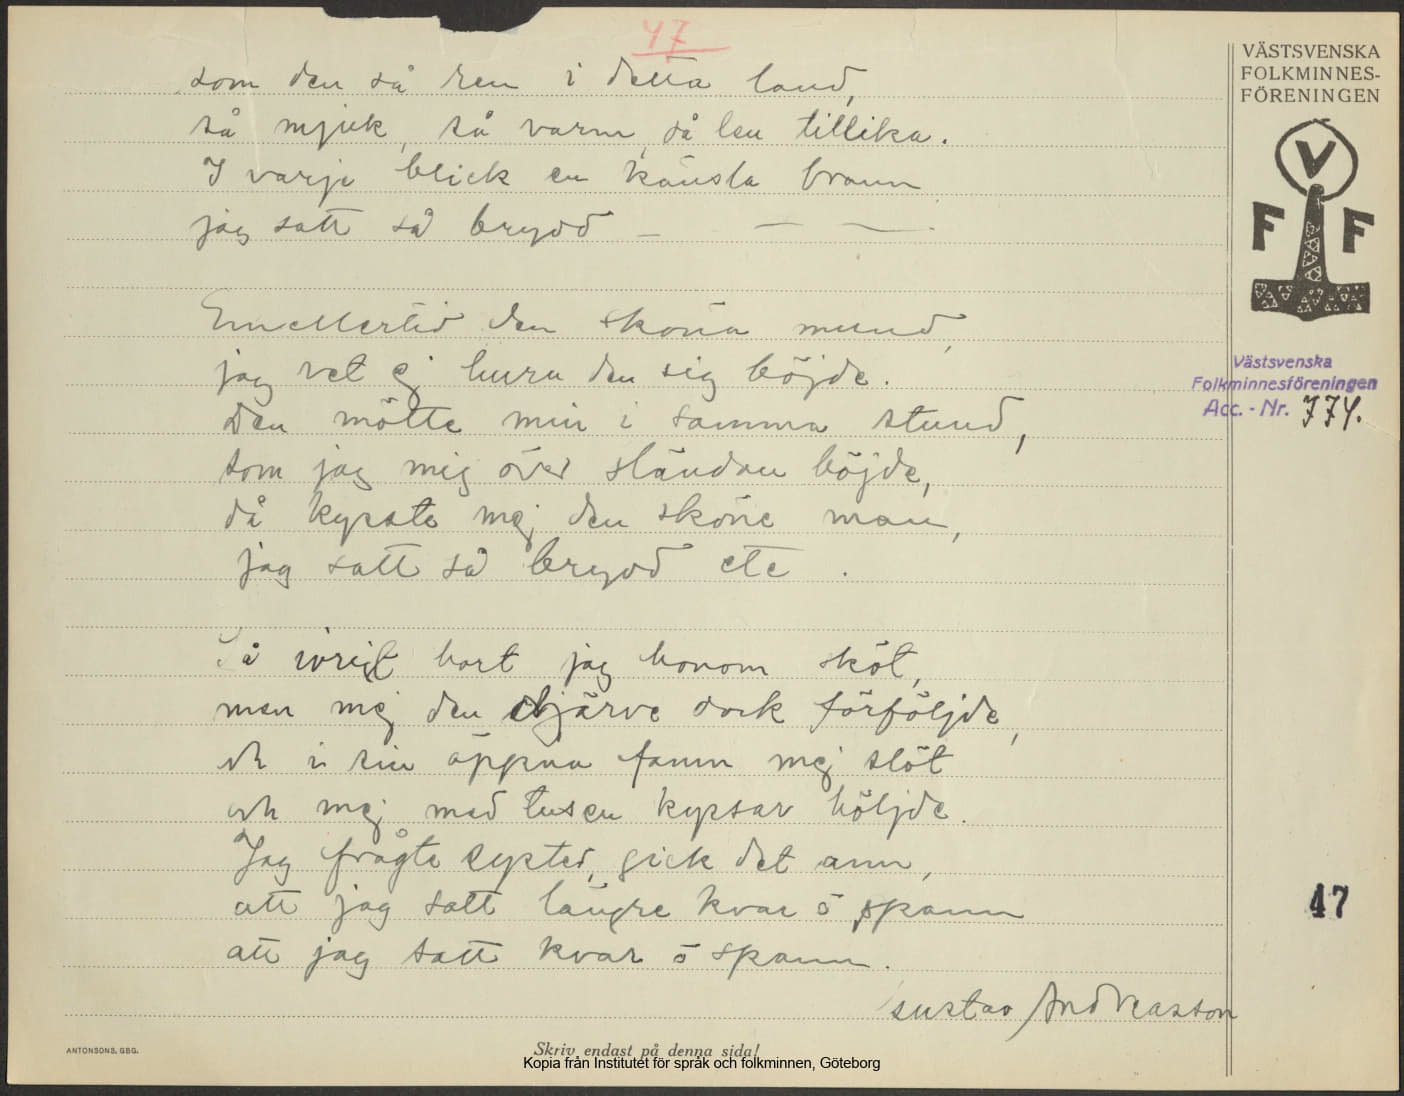 47
som den så ren i detta land,
så mjuk, så varm, så len tillika.
I varje blick en känsla brann
jag satt så brydd – – –
Emellertid den sköna mund,
jag vet ej huru den sig böjde.
Den mötte min i samma stund,
som jag mig över sländan böjde,
då kysste mej den sköne man,
jag satt så brydd etc.
Så ivrigt bort jag honom sköt,
men mej den djärve dock förföljde,
och i sin öppna famn mej slöt
och mej med tusen kyssar höljde.
Jag frågte syster, gick det ann,
att jag satt längre kvar ö spann
att jag satt kvar ö spann.
Gustav Andreasson
VÄSTSVENSKA
FOLKMINNES-
FÖRENINGEN
V
F F
Västsvenska
Folkminnesföreningen
Acc. - Nr. 774.
47
ANTONSONS, GBG.
Skriv endast på denna sida!
Kopia från Institutet för språk och folkminnen, Göteborg